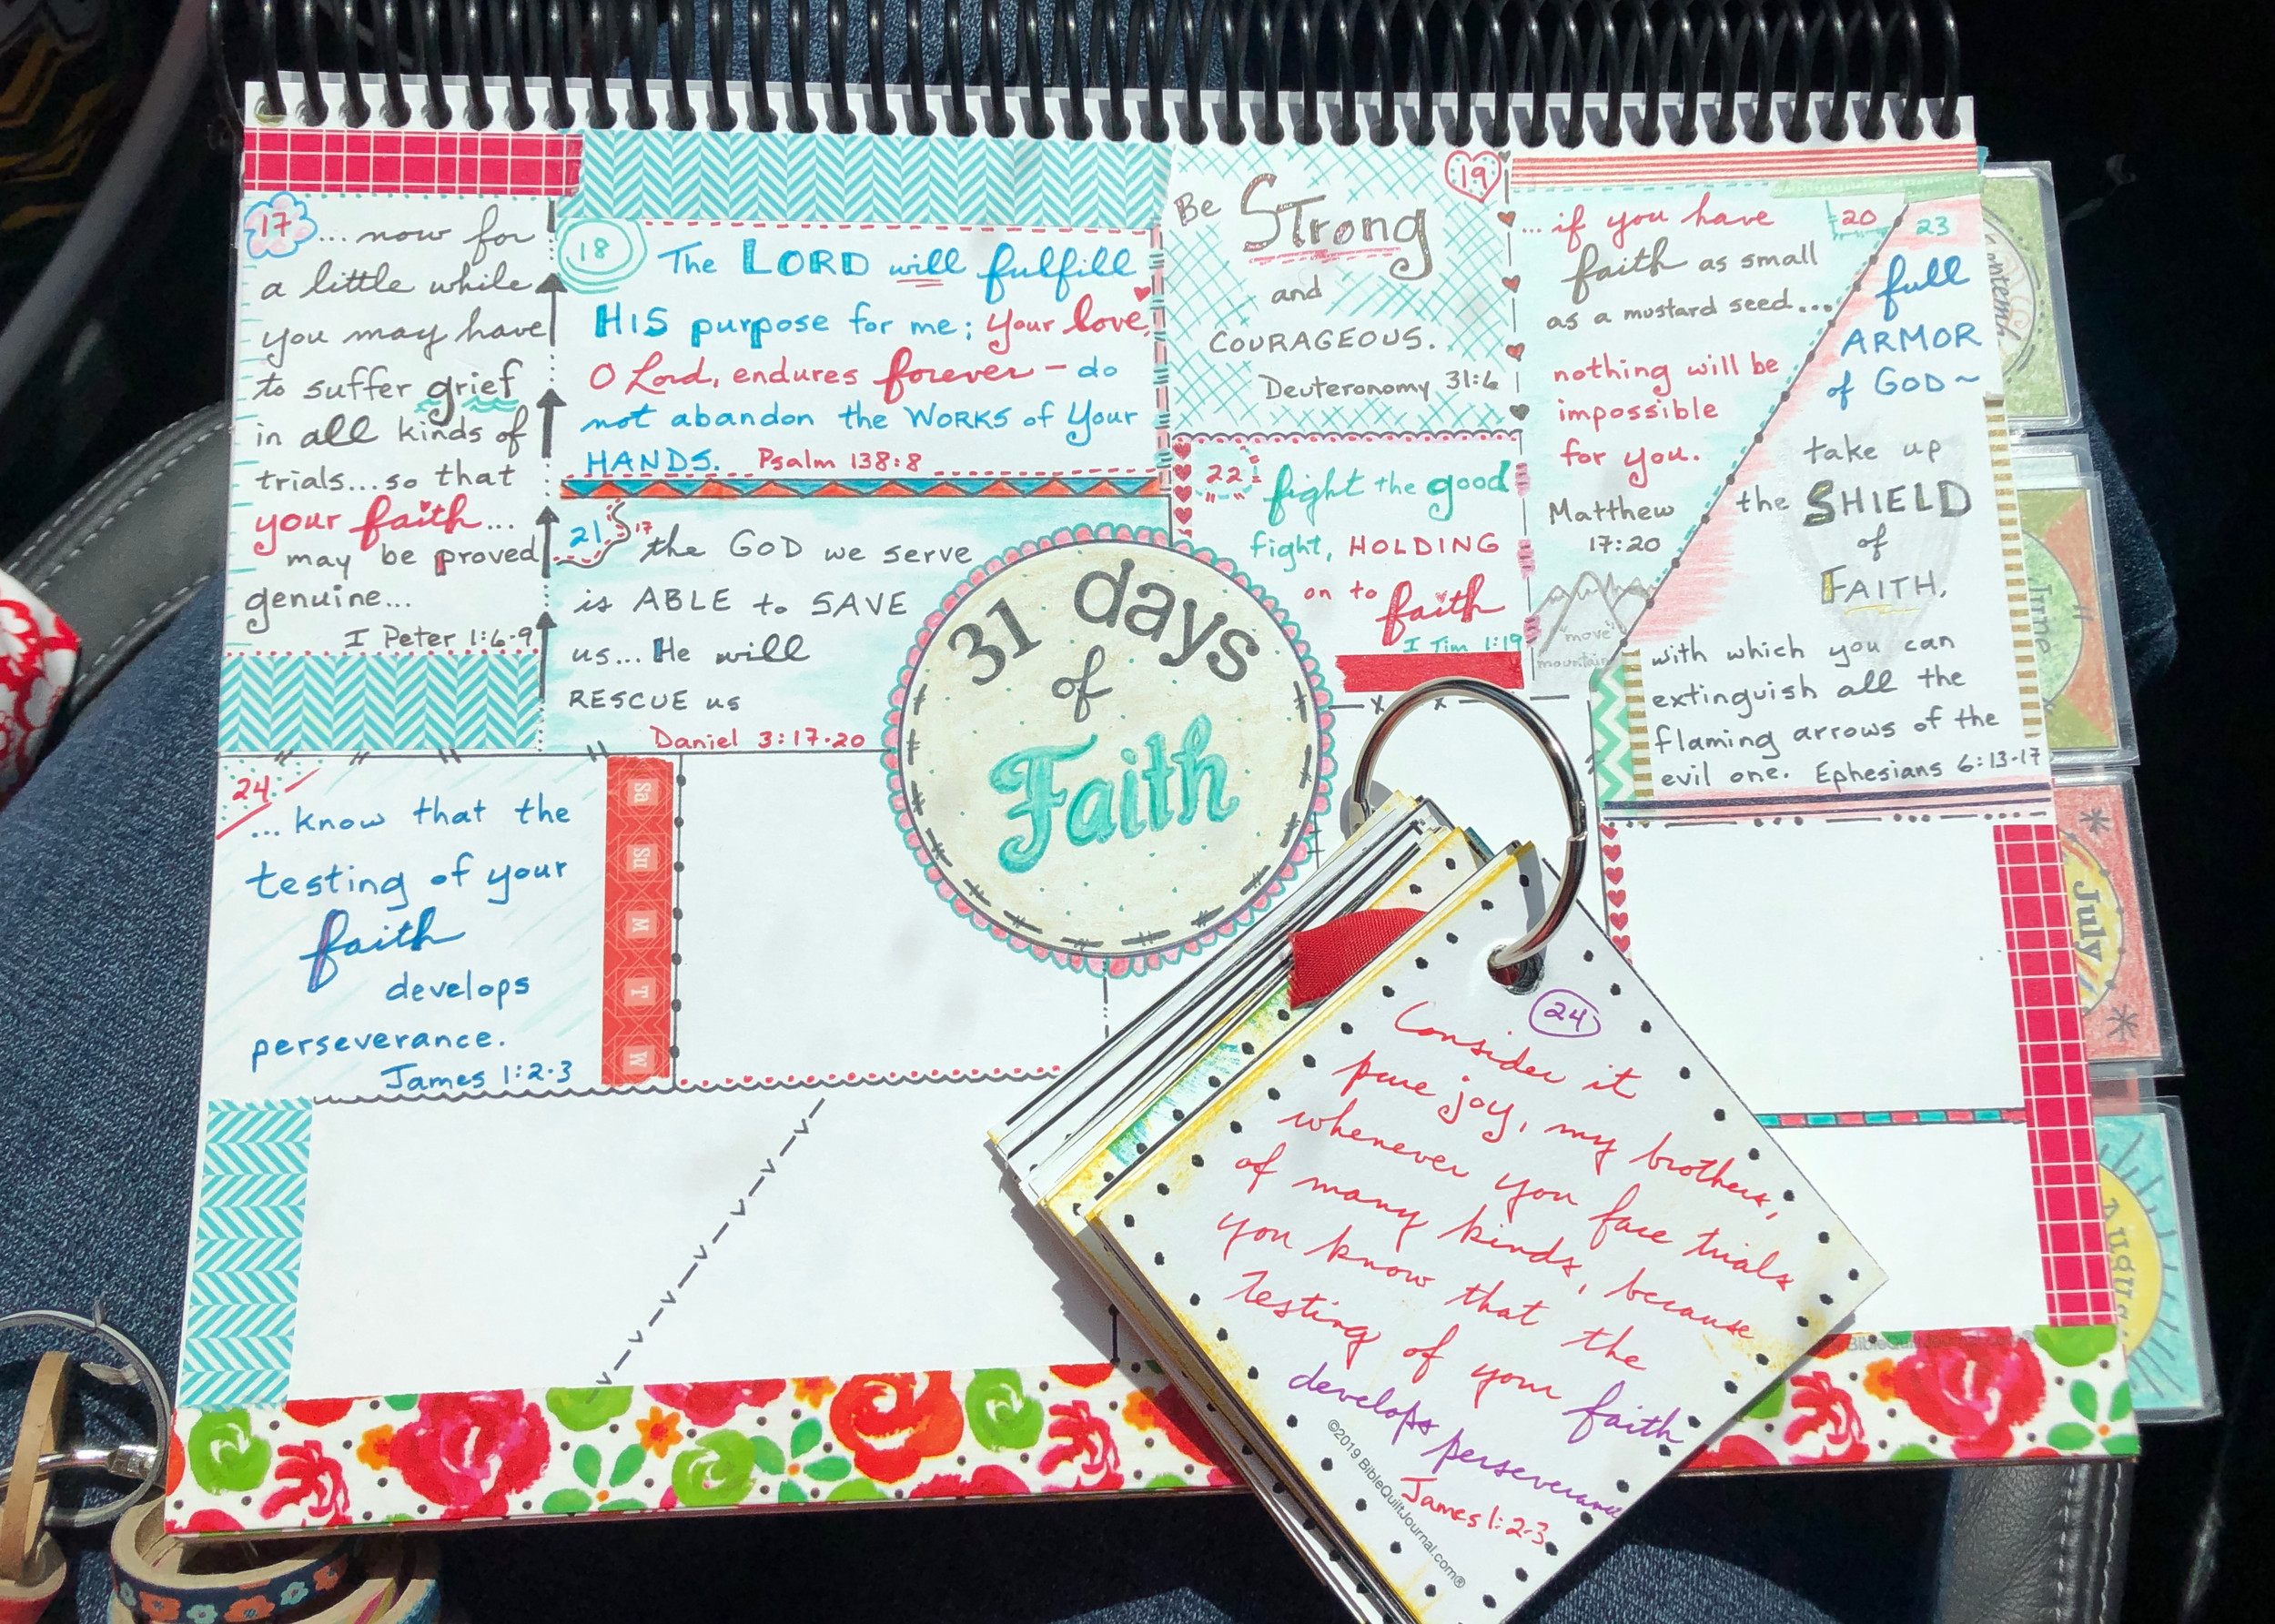 17
... now for
a little while
you may have
to suffer grief
in all kinds of
trials... so that
your faith...
may be proved
genuine...
I Peter 1:6-9
18
The LORD will fulfill
HIS purpose for me; your love,
O Lord, endures forever - do
not abandon the WORKS of Your
HANDS. Psalm 138:8
19
Be STrong
and
COURAGEOUS.
Deuteronomy 31:6
20
... if you have
faith as small
as a mustard seed...
nothing will be
impossible
for you.
Matthew
17:20
"move"
mountain
21
17 the GOD we serve
is ABLE to SAVE
us... He will
RESCUE us
Daniel 3:17-20
22
fight the good
fight, HOLDING
on to
faith
I Tim 1:19
23
full
ARMOR
of GOD ~
take up
the SHIELD
of
FAITH,
with which you can
extinguish all the
flaming arrows of the
evil one. Ephesians 6:13-17
31 days
of
Faith
24
... know that the
testing of your
faith
develops
perseverance.
James 1:2-3
Sa
Su
M
T
W
24
Consider it
pure joy, my brothers,
whenever you face trials
of many kinds, because
you know that the
testing of your faith
develops perseverance
James 1:2-3
©2019 BibleQuiltJournal.com®
June
July